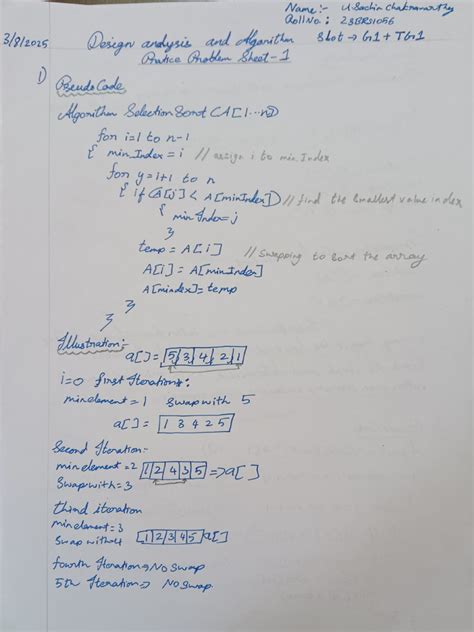 Name:- U. Sachin Chakravarthy
Roll No: 23BRS1056
3/8/2025 Design analysis and Algorithm Slot → G1 + TG1
Pratice Problem Sheet - 1
1) Pseudo Code
Algorithm Selection Sort (A[1...n])
for i=1 to n-1
{ min_Index = i // assign i to min Index
for y=i+1 to n
{ if (A[j] < A[minIndex]) // find the smallest value index
{ min Index=j
}
temp = A[i] // swapping to sort the array
A[i] = A[minIndex]
A[mindex]=temp
}
}
Illustration:-
a[] = 5, 3, 4, 2, 1
i=0 first Iteration:
min element = 1 swap with 5
a[] = 1 3 4 2 5
Second Iteration=
min element = 2 1 2 4 3 5 => a[ ]
Swap with = 3
third iteration
min element = 3
swap with 4 1 2 3 4 5 a[]
fourth Iteration => No swap
5th Iteration => No swap.